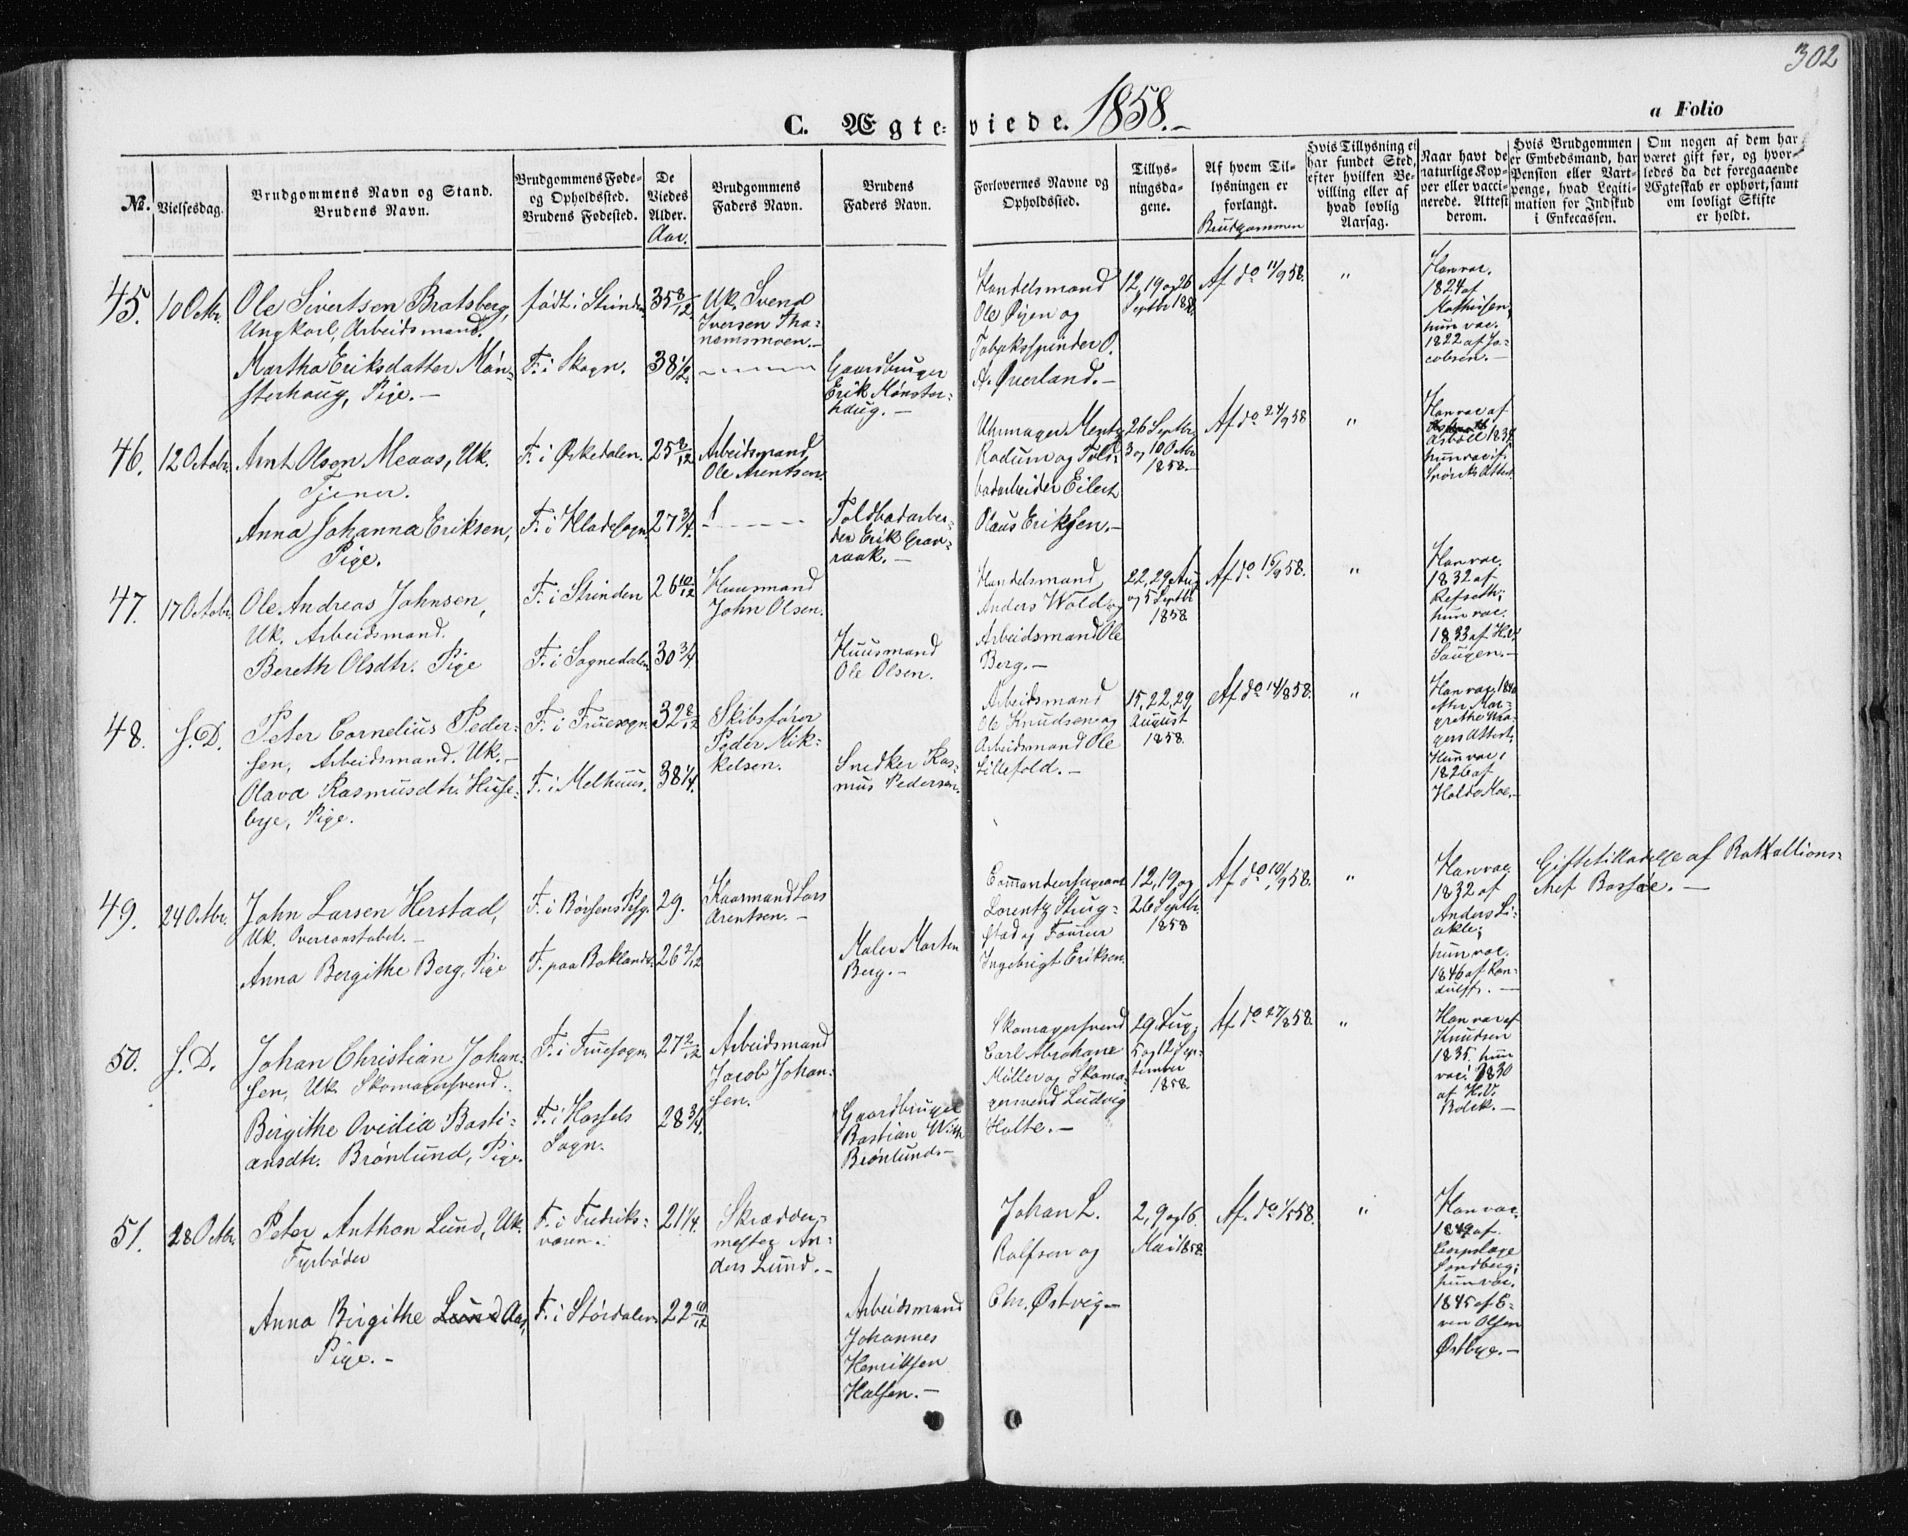 302
C. Ægteviede. 1858.-
a Folio
№.
Vielsesdag.
Brudgommens Navn og Stand.
Brudens Navn.
Brudgommens Føde-
og Opholdssted.
Brudens Fødested.
De
Viedes
Alder.
Aar.
Brudgommens
Faders Navn.
Brudens
Faders Navn.
Forlovernes Navne og
Opholdssted.
Tillys-
ningsda-
gene.
Af hvem Til-
lysningen er
forlangt.
Brudgommen
Hvis Tillysning ei
har fundet Sted,
efter hvilken Be-
villing eller af
hvad lovlig
Aarsag.
Naar havt de
naturlige Kop-
per eller vacci-
nerede. Attest
derom.
Hvis Brudgommen
er Embedsmand, har
Pension eller Vart-
penge, hvad Legiti-
mation for Indskud
i Enkecassen.
Om nogen af dem har
været gift før, og hvor-
ledes da det foregaaende
Ægteskab er ophørt, samt
om lovligt Skifte
er holdt.
45.
10 Octbr.
Ole Sivertsen Bratsberg,
Ungkarl, Arbeidsmand.
Martha Eriksdatter Møn-
sterhoug, Pige.-
født i Strinden
F. i Skogn.
35 8/12
38 1/2
Uk. Svend
Iversen Tha-
nemsmoen.-
Gaardbruger
Erik Mønster-
haug.-
Handelsmand
Ole Øyen og
Tobaksspinder O.
A. Øverland.-
12, 19 og 26
Septbr 1858.
Af do 11/9 58.
"
Han vac.
1824 af
Mathisen,
hun vac.
1822 af Ja-
cobsen.-
46.
12 Octobr.
Arnt Olsen Meaas, Uk.
Tjener.
Anna Johanna Eriksen,
Pige.
F. i Ørkedalen.
F. i Hladesogn
25 8/12
27 3/4
Arbeidsmand
Ole Arentsen.
Toldbodarbei-
der Erik Grav-
raak.-
Uhrmager Mentz
Rodum og Told-
bodarbeider Eilert
Olaus Eriksen.-
26 Septbr,
3 og 10 Octbr
1858.-
Af do 24/9 58
"
Han vac af
1834
hun vac if.
Attest
47.
17 Octobr.
Ole Andreas Johnsen,
Uk. Arbeidsmand.
Bereth Olsdtr. Pige
F. i Strinden
F. i Sognedalen
26 10/12
30 3/4
Huusmand
John Olsen.
Huusmand
Ole Olsen.
Handelsmand
Anders Wold og
Arbeidsmand Ole
Berg.-
22, 29 Aug
og 5 Septbr
1858.
Af do 16/9 58.
"
Han vac.
1832 af
Refseth;
hun vac.
1833 af H.
Haugen.-
48.
S. D.
Peter Cornelius Peder-
sen, Arbeidsmand. Uk.-
Olava Rasmusdtr. Huse-
bye, Pige.
F. i Fruesogn
F. i Melhuus.
32 8/12
38 1/4
Skibsfører
Peder Mik-
kelsen.
Snedker Ras-
mus Pedersen.
Arbeidsmand
Ole Knudsen og
Arbeidsmand Ole
Lillefold.-
15, 22, 29
August
1858.
Af do 14/8 58.
"
Han vac. 1840
efter Mar-
grethe
Attest;
Hun vac.
1826 af
Holdo Moe.-
49.
24 Octbr.
John Larsen Herstad,
Uk. Overconstabel.-
Anna Bergithe Berg, Pige
F. i Børsens Pstg.
F. paa Baklandet.
29.
26 2/12
Kaarmand Lars
Arentsen.-
Maler Morten
Berg.-
Commandeersergeant
Lorentz Strug-
stad og Fourer
Ingebrigt Eriksen.
12, 19 og
26 Septbr.
1858
Af do 10/9 58.
"
Han vac.
1832 af
Anders Li-
akle;
hun vac.
1846 af Ran-
dulff.-
Giftetilladelse af Battallions-
chef Bassøe.-
50.
S. D.
Johan Christian Johan-
sen, Uk. Skomagersvend.
Birgithe Ovidia Basti-
ansdtr. Brønlund, Pige.
F. i Fruesogn.
F. i Hassels
Sogn.
27 2/12
28 3/4
Arbeidsmand
Jacob Johan-
sen.
Gaardbruger
Bastian With
Brønlund.-
Skomagersvend
Carl Abrahane
Müller og Skoma-
gersvend Ludvig
Holte.-
29 Aug,
5 og 12 Sep-
tember
1858.
Af do 27/8 58.
"
Han vac af
Knudsen
1835. hun
vac. 1830
af H. V.
Bolck.-
51.
28 Octbr.
Peter Anthon Lund, Uk.
Fyrbøder
Anna Birgithe Lund Aas,
Pige.-
F. i Fredriks-
værn.
F. i Størdalen
21 1/4.
22 10/12
Skrædder-
mester An-
ders Lund.-
Arbeidsmand
Johannes
Henriksen
Halsen.-
Johan L.
Rolfsen og
Chr. Østvig.-
2, 9 og 16.
Mai 1858.
Af. do 1/5 58.
"
Han vac.
1849 af
Corpslæge
Sandberg;
hun vac.
1845 af E-
ven Olsen
Østbye.-